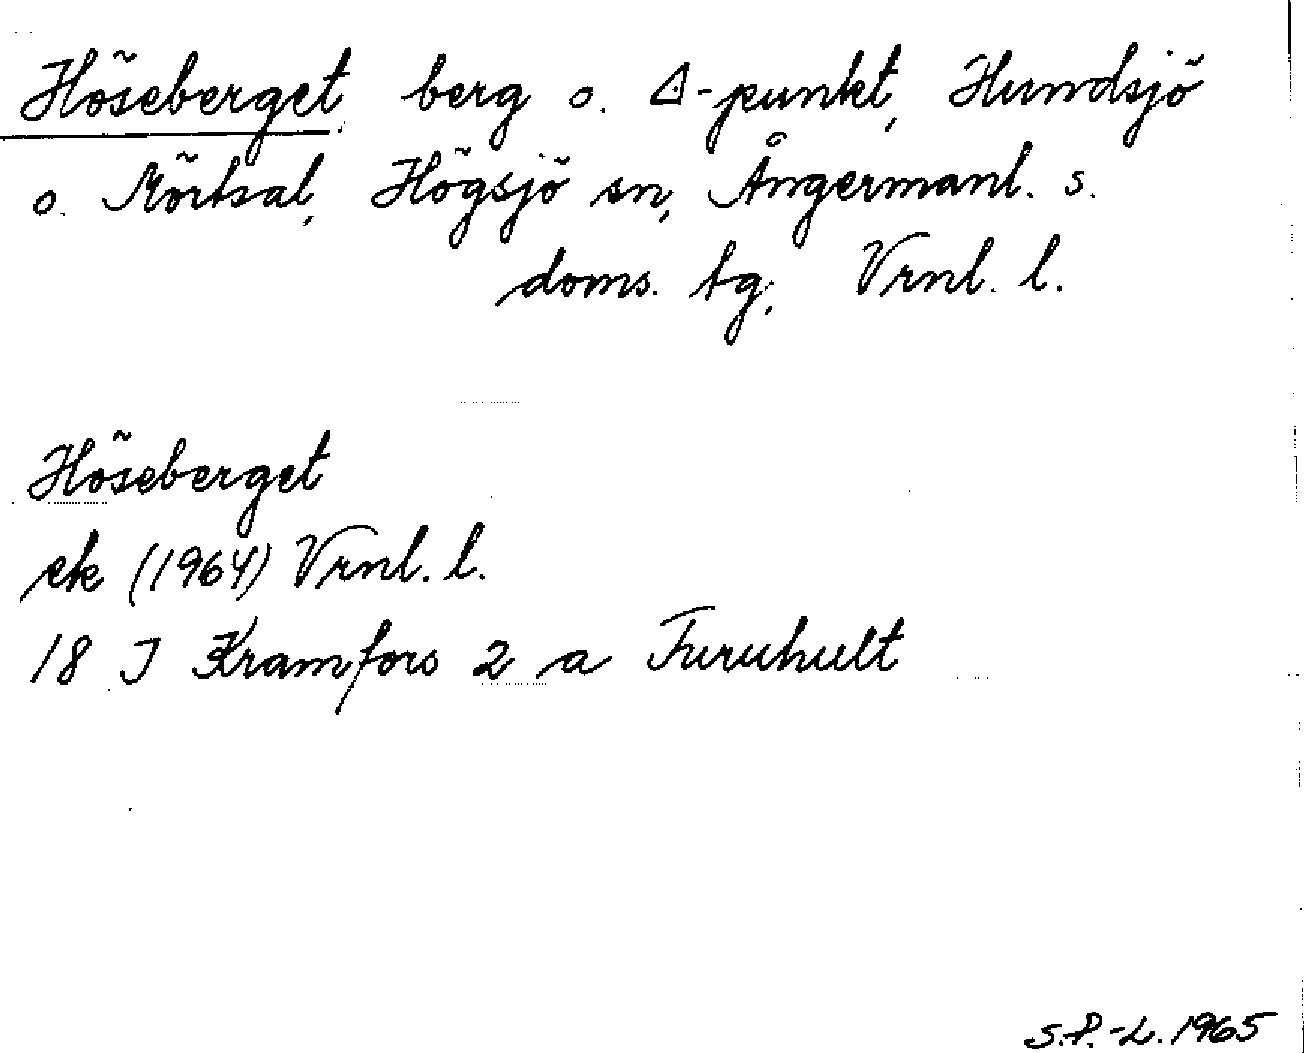 Höseberget, berg o. Δ-punkt, Hundsjö
o. Mörtsal, Högsjö sn, Ångermanl. s.
doms. tg, Vrnl. l.
Höseberget
ek (1964) Vrnl. l.
18 I Kramfors 2 a Furuhult
S.P.-L. 1965